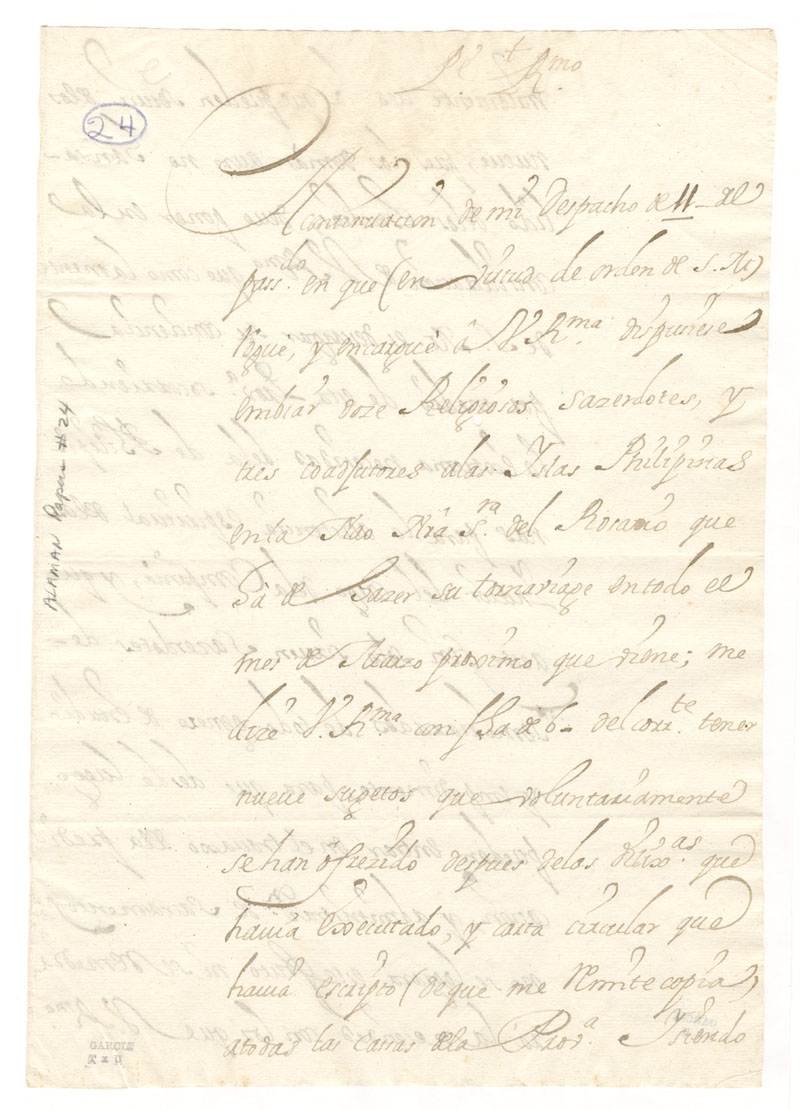 Rmo
24
A continuacion de mi Despacho de 11 - del
pass.do en que (en virtud de orden de S. M.)
rogué, y encargué â V. Rma. dispusiese
embiar doze Religiosos sazerdotes, y
tres coadjutores alas Yslas Philipinas
enla Nao Nrã S.ra del Rosario que
ha de hazer su tornaviage entodo el
mes de Marzo proximo que viene; me
dize V. Rma con fha de 6 - del corr.te tener
nueve sugetos que voluntariamente
se han ofrezido despues delas que
havia executado, y carta circular que
havia escripto (de que me remite copia)
atodas las casas dela Prov.a Y siendo
ALAMAN Papers #24
GARCIA